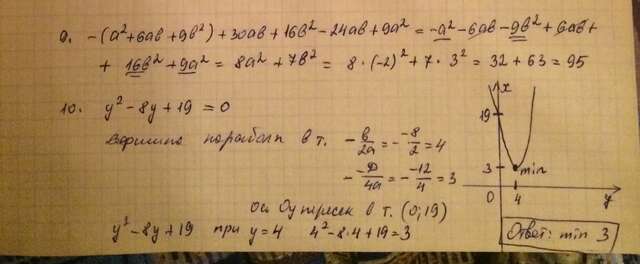 9. -(a²+6ab+9b²)+30ab+16b²-24ab+9a² = -a²-6ab-9b²+6ab+
+ 16b²+9a² = 8a²+7b² = 8·(-2)²+7·3² = 32+63=95
10. y²-8y+19=0
Вершина параболы в т. -b/2a = - -8/2 = 4
- -D/4a = - -12/4 = 3
Ось Oy пересек в т. (0;19)
y²-8y+19 при y=4 4²-8·4+19=3
x
19
3
min
0
4
y
Ответ: min 3